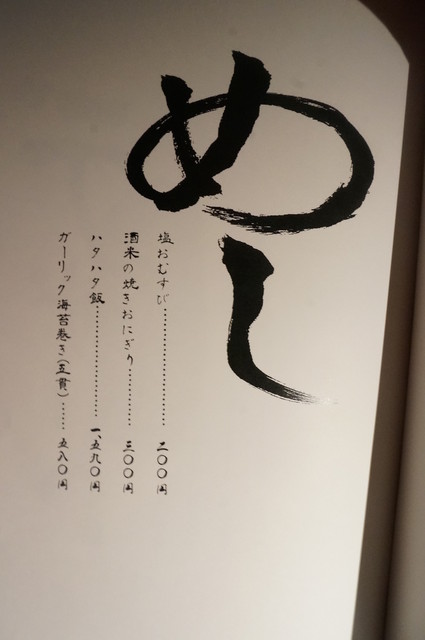 めし
塩おむすび……………………二〇〇円
酒米の焼きおにぎり…………三〇〇円
ハタハタ飯……………………一、五九〇円
ガーリック海苔巻き（五貫）……五八〇円